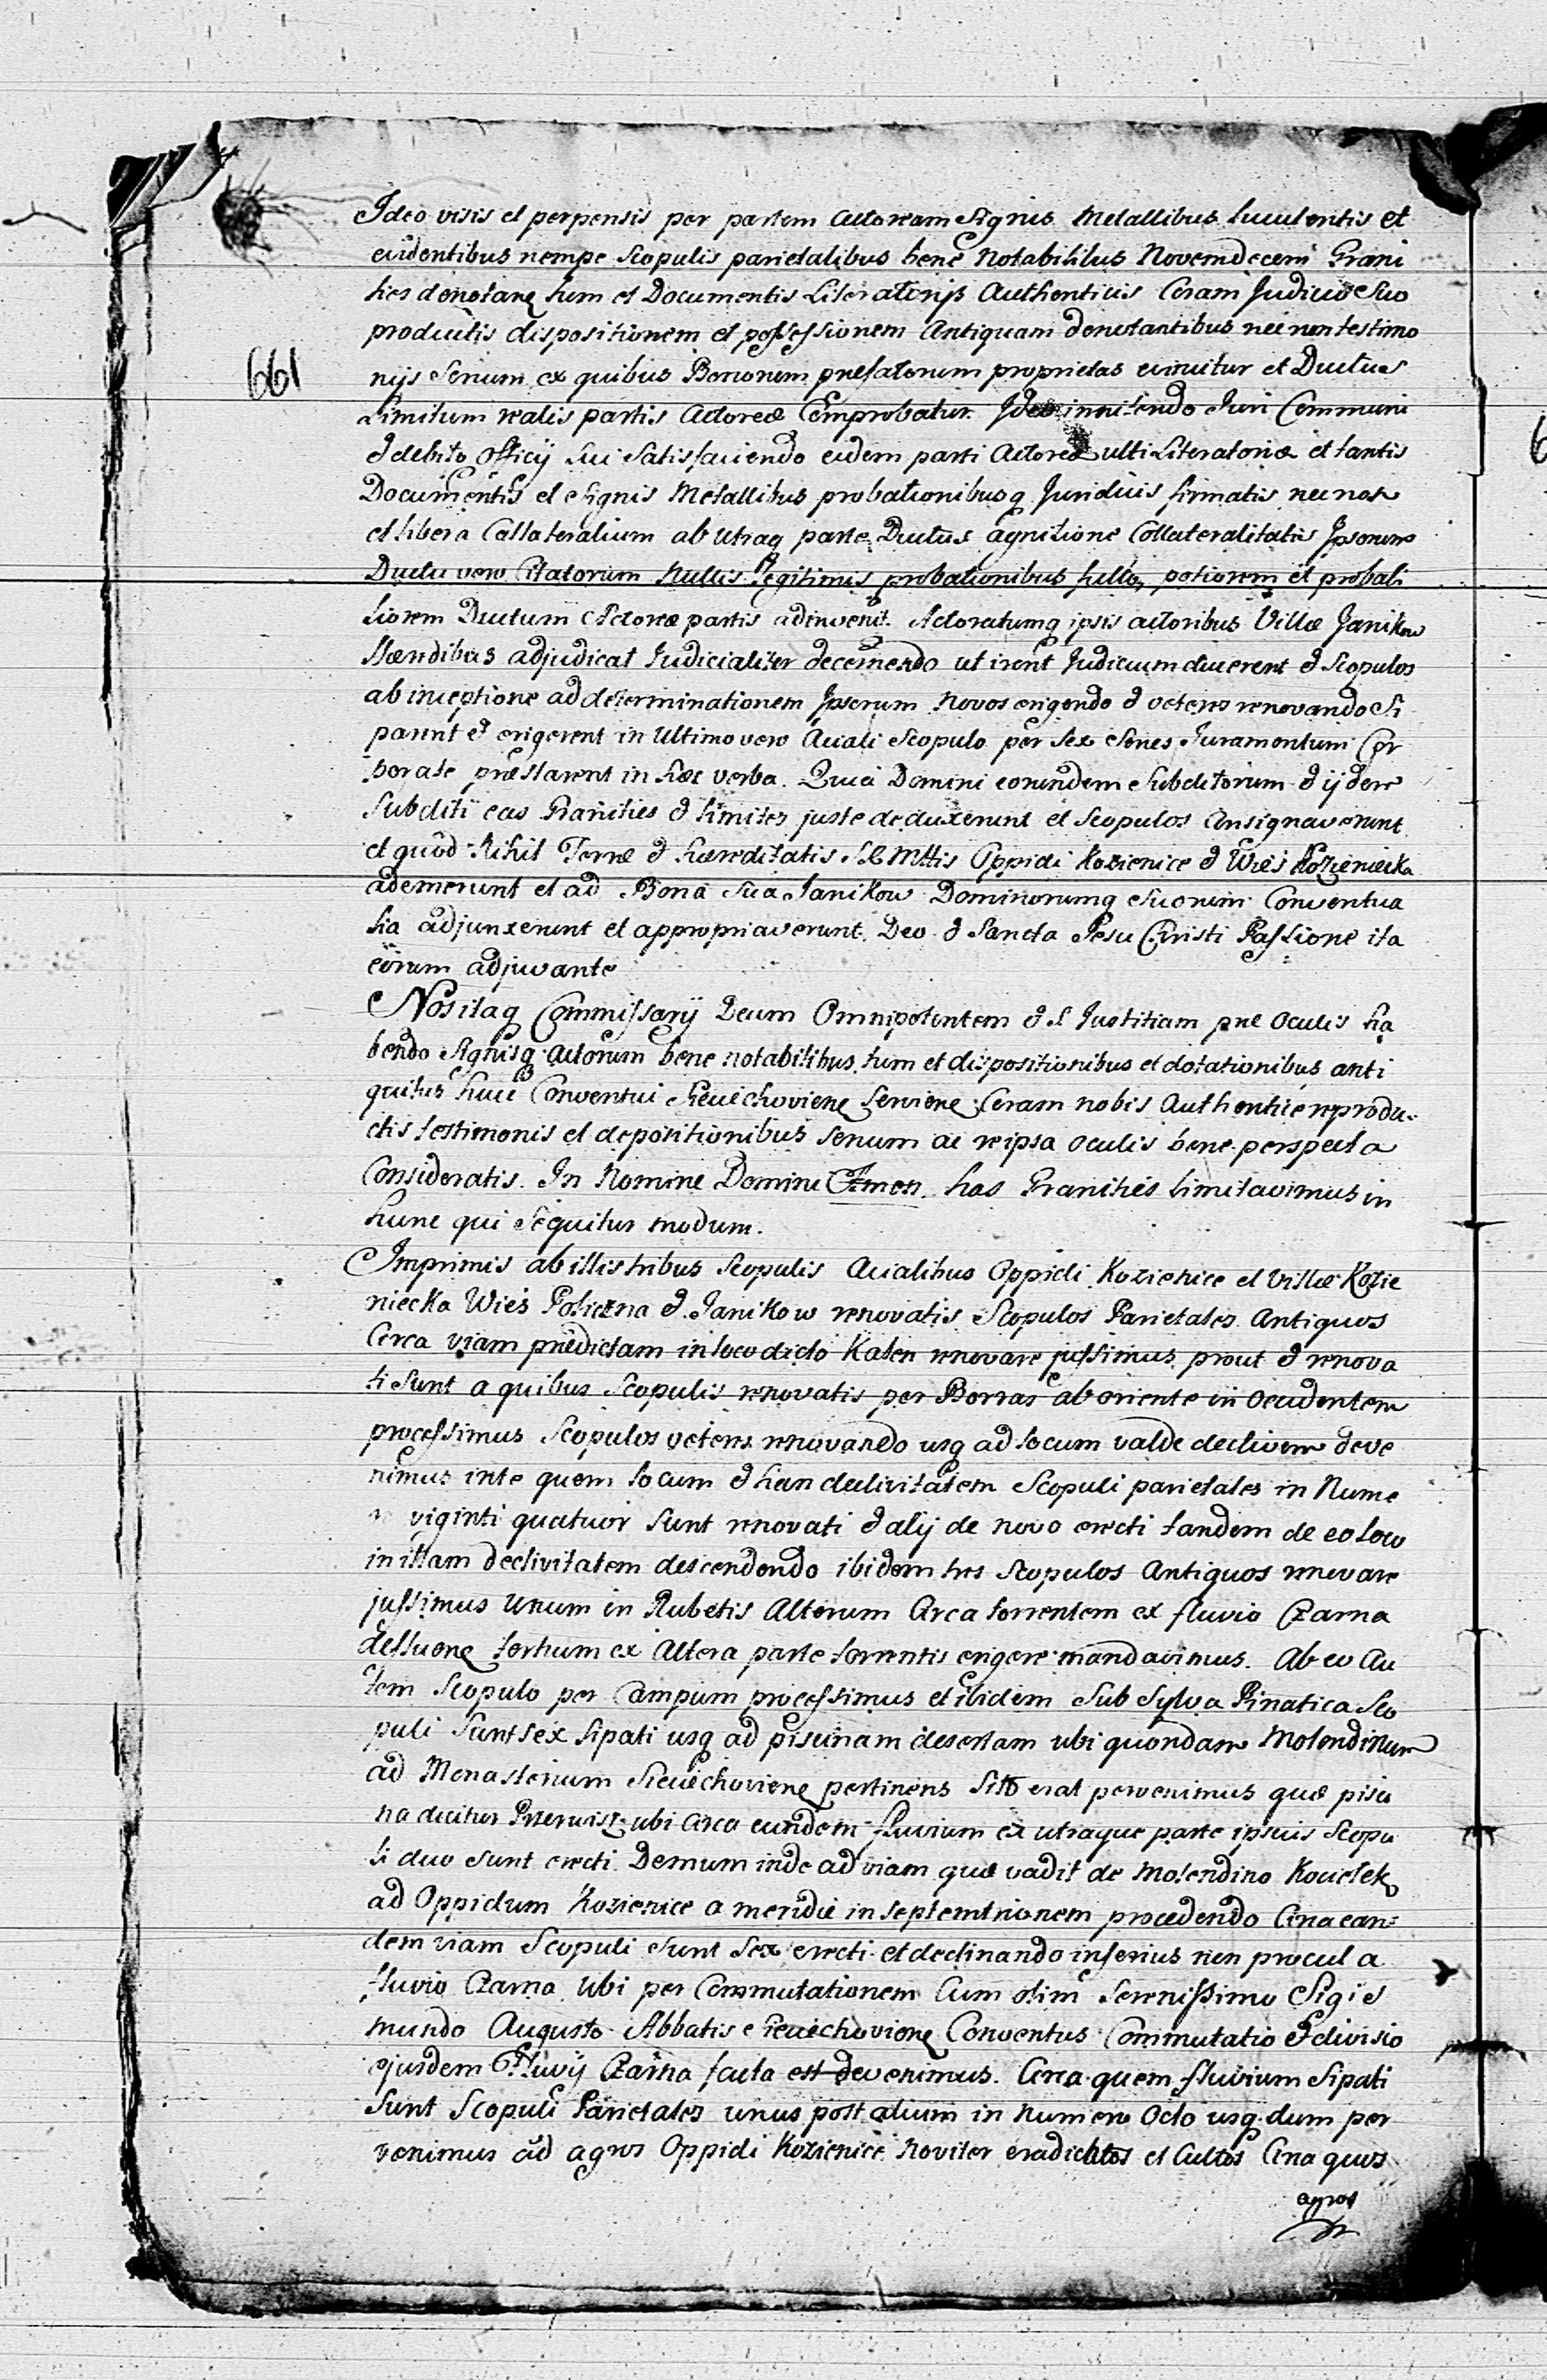 Ideo visis et perpensis per partem Actoream Signis Metallibus luculentis et
evidentibus nempe Scopulis parietalibus bene Notabilibus Novemdecem Grani
ties denotane tum et Documentis Literatorijs Authenticis Coram Judicio Suo
productis dispositionem et possessionem Antiquam denotantibus nec non testimo
661
nijs Senum ex quibus Bonorum prefatorum proprietas evincitur et Ductus
Limitum realis partis Actoreæ Comprobatur. Ideo innitendo Juri Communi
& debito Officij Sui Satisfaciendo eidem parti Actoreæ Literatoriæ et tantis
Documentis et Signis Metallibus probationibusq Juridicis firmatis nec non
et libera Collateralium ab utraq parte Ductus agnitione Collateralitatis Ipsorum
Ductu vero Citatorum Nullis legitimis probationibus fulto, potiorem et probabi
liorem Ductum Actoreæ partis adinvenit. Actoratumq ipsis actoribus Villæ Janikow
Hæredibus adjudicat Judicialiter decernendo ut irent Judicium ducerent & Scopulos
ab inceptione ad determinationem Ipsorum Novos erigendo & veteres renovando Si
parent & erigerent in Ultimo vero Aciali Scopulo per Sex Senes Juramentum Cor
porale præstarent in hæc verba. Quia Domini eorundem Subditorum & ijdem
Subditi eas Granities & limites juste deduxerunt et Scopulos Consignaverunt
et quod Nihil Terræ & hæreditatis S R Mttis Oppidi Kozienice & Wies Kozieniecka
ademerunt et ad Bona Sua Janikow Dominorumq Suorum Conventua
lia adjunxerunt et appropriaverunt. Deo & Sancta Jesu Christi Passione ita
eorum adjuvante
Nos itaq Commissarij Deum Omnipotentem & S Justitiam præ Oculis ha
bendo Signisq Actorum bene notabilibus, tum et dispositionibus et dotationibus anti
quitus huic Conventui Sieciechoviene Serviene Coram nobis Authentice reprodu
ctis testimonis et depositionibus Senum ac reipsa oculis bene perspecta
Consideratis. In Nomine Domini Amen. has Granities limitavimus in
hunc qui Sequitur modum.
Imprimis ab illis tribus Scopulis Acialibus Oppidi Kozienice et Villæ Kozie
niecka Wies Policzna & Janikow renovatis Scopulos Parietales Antiquos
Circa viam prædictam in loco dicto Katen renovare jussimus, prout & renova
ti Sunt a quibus Scopulis renovatis per Borras ab oriente in Occidentem
processimus Scopulos veteres renovando usq ad locum valde declivem deve
nimus inte quem locum & han declivitatem Scopuli parietales in Nume
viginti quatuor Sunt renovati & alij de novo erecti tandem de eo loco
in illam declivitatem descendendo ibidem tres Scopulos Antiquos renovare
jussimus Unum in Rubetis Alterum Circa torrentem ex fluvio Czarna
defluene tertium ex Altera parte torrentis erigere mandavimus. Ab eo Au
tem Scopulo per Campum processimus et ibidem Sub Sylva Pinatica Sco
puli Sunt Sex Sipati usq ad piscinam desertam ubi quondam Molendinum
ad Monasterium Sieciechoviene pertinens Sitt erat pervenimus quæ pisci
na dicitur ubi Circa eundem fluvium ex utraque parte ipsius Scopu
li duo Sunt erecti Demum inde ad viam quæ vadit de Molendino Kociełek
ad Oppidum Kozienice a meridie in Septemtrionem procedendo Circa ean
dem viam Scopuli Sunt Sex erecti et declinando inferius non procul a
fluvio Czarna Ubi per Commutationem Cum olim Serenissimo Sigis
mundo Augusto Abbatis Sieciechoviene Conventus Commutatio & divisio
ejusdem fluvij Czarna facta est devenimus. Circa quem fluvium Sipati
Sunt Scopuli Parietales unus post alium in numero Octo usq dum per
venimus ad agros Oppidi Kozienice Noviter eradicatos et Cultos Circa quos
agros